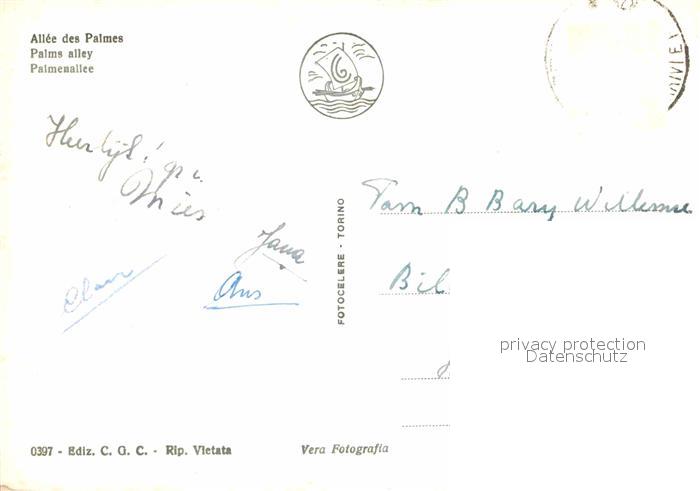 Allée des Palmes
Palms alley
Palmenallee
Herlijk! gr v.
Mies
Jana
Ans
Clair
FOTOCELERE - TORINO
Fam B Bary Willemse
Bil
privacy protection
Datenschutz
0397 - Ediz. C. G. C. - Rip. Vietata
Vera Fotografia